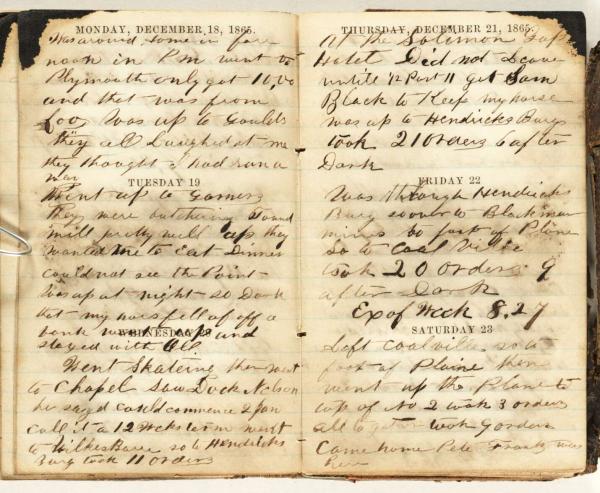 MONDAY, DECEMBER 18, 1865.
Was around home in fore
noon in P.m. went to
Plymouth only got 10,00
and that was from
Was up to Goulds
they all Laughed at me
they thought I had run a
way
TUESDAY 19
Went up to Gomers
they were butchering found
mill pretty well up they
wanted me to Eat Dinner
could not see the Point
Was up at night so Dark
that my horse fell off a
bank and
stayed with
WEDNESDAY 20
Went Skateing then went
to Chapel Saw Dock Nelson
he say'd could commence 2 Jan
call it a 12 weeks term went
to Wilkes Barre so to Hendricks
Burg took 11 orders
THURSDAY, DECEMBER 21, 1865.
at the Solomon Gap
Hotel Did not Leave
until 12 Past 11 got Sam
Black to Keep my horse
was up to Hendricks Burg
took 21 orders 6 after
Dark
FRIDAY 22
Was through Hendricks
Burg so over to Blackman
mines to foot of Plane
so to Coal Ville
took 20 orders 9
after Dark
Exp of Week 8,27
SATURDAY 23
Left Coalville so to
foot of Plaine then
went up the Plane to
top of No 2 took 3 orders
all together took 9 orders
Came home Pete Frantz was
here